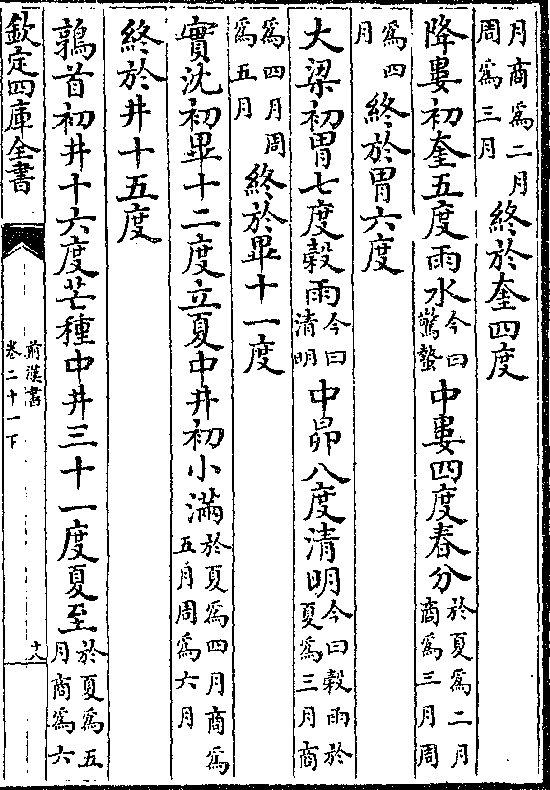 月商爲二月周爲三月終於奎四度
降婁初奎五度雨水今曰驚蟄中婁四度春分於夏爲二月商爲三月周
爲四月終於胃六度
大梁初胃七度穀雨今曰清明中昴八度清明今曰穀雨於夏爲三月商
爲四月周爲五月終於畢十一度
實沈初畢十二度立夏中井初小滿於夏爲四月商爲五月周爲六月
終於井十五度
鶉首初井十六度芒種中井三十一度夏至於夏爲五月商爲六
欽定四庫全書
前漢書
卷二十一下
十八